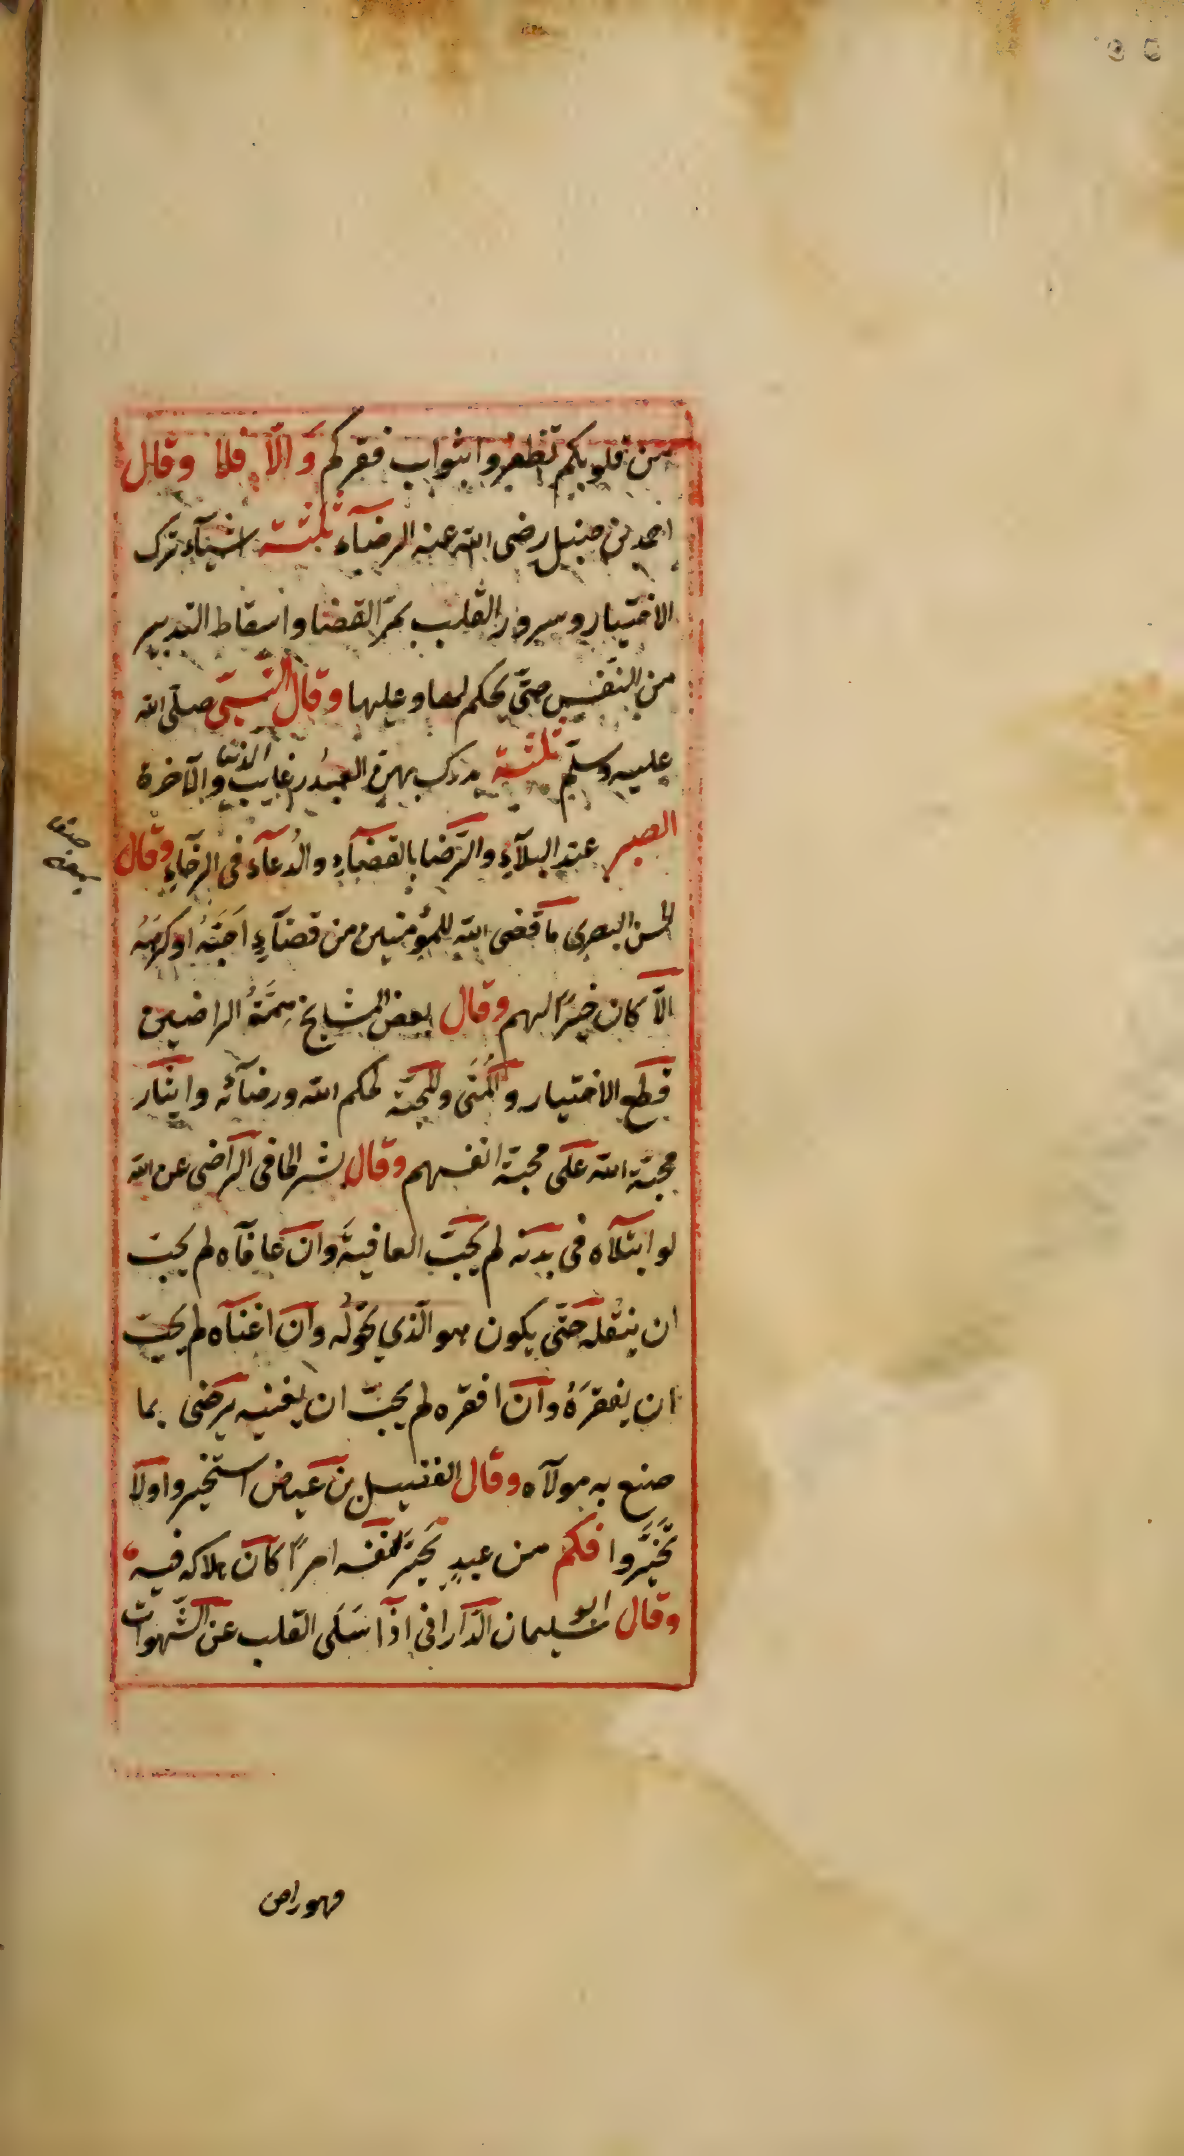 من قلوبكم تظفروا بثواب فقركم وَالّا فلا وقال
احمد بن حنبل رضى الله عنه الرضآء ثلثة اشيآء ترك
الاختيار وسرور القلب بمرّ القضا واسقاط التدبير
من النفس حتّى يحكم لها وعليها وقال النّبىّ صلّى الله
عليه وسلّم ثلثة يدرك بهن العبدُ رغايب الدنيا والآخرة
الصبر عند البلآءِ والرّضا بالقضآءِ والدُعآء فى الرخآءِ وقال
الحسن البصرى ما قضى الله للمؤمنين من قضآءٍ احبّهُ او كرهَهُ
الّا كان خيرًا لهم وقال بعض المشايخ هِمَّةُ الراضين
قطع الاختيار والمُنَى والمحبّة لحكم الله ورضآئه وايثار
محبّة الله على محبّة انفسهم وقال بشر الحافى الرّاضى عن الله
لو ابتلآه فى بدنه لم يحبّ العافيةَ وان عافآه لم يحبّ
ان ينقله حتّى يكون هو الّذي يحوّلُه وان اغنآه لم يحبّ
ان يفقرَهُ وان افقره لم يحبّ ان يغنيه يرضى بما
صنع به مولآه وقال الفضيل بن عياض استخيروا ولا
تَخَيَّروا فكم من عبدٍ تخيّر لنفسه امرًا كان هلاكه فيه
وقال ابو سليمان الدّارانى اذا سَلَى القلب عن الشّهوات
فهو راض